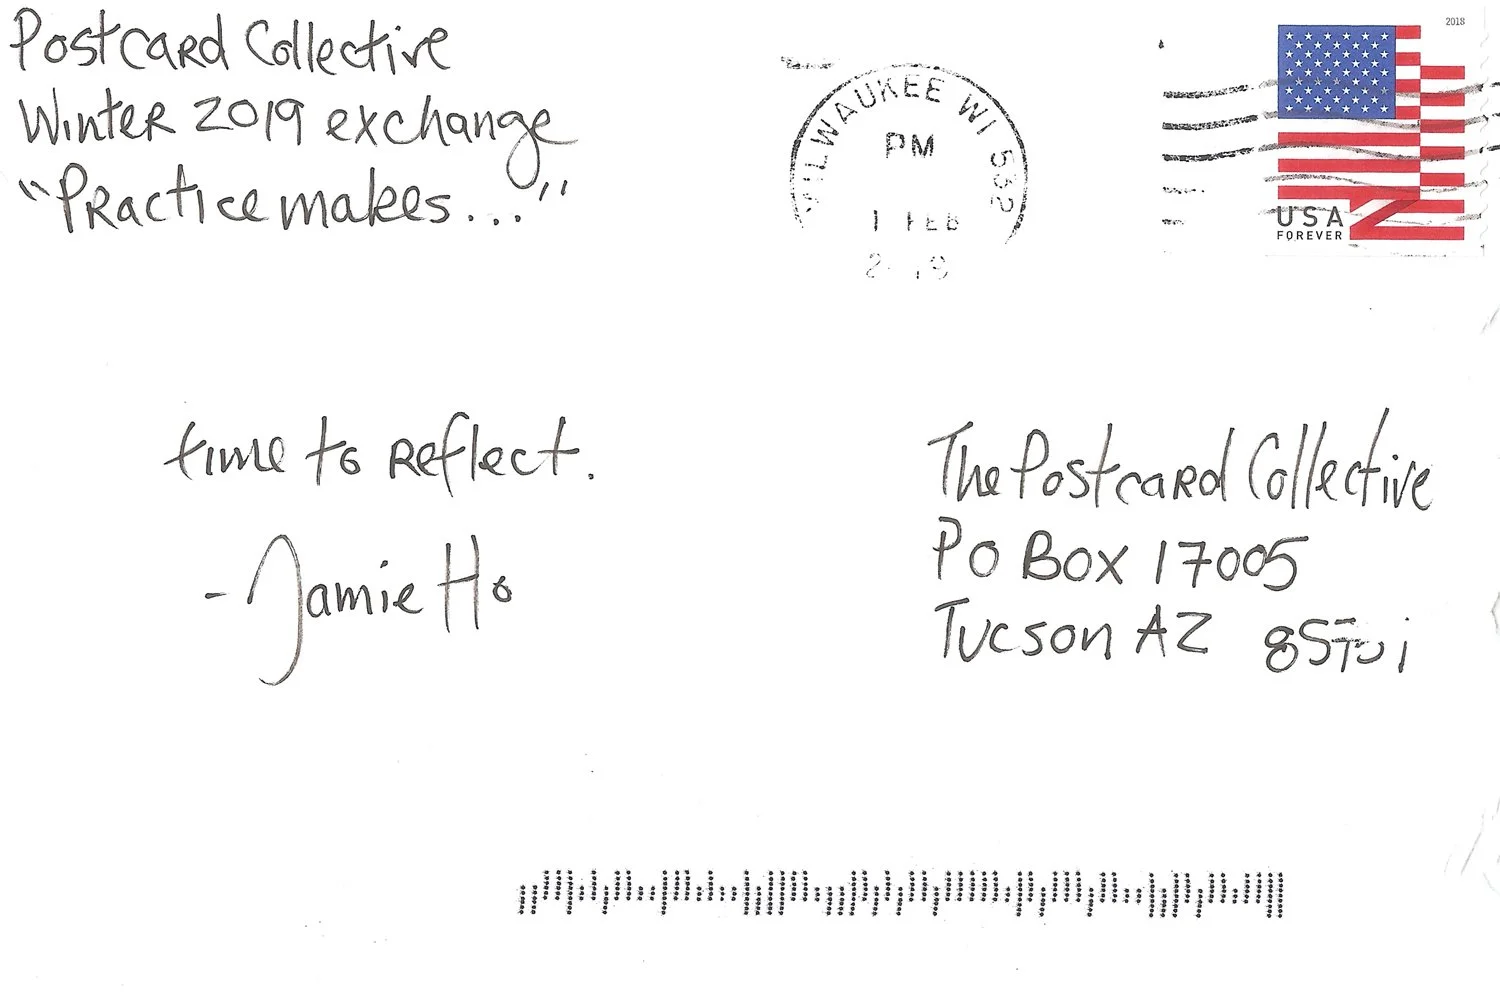 Postcard Collective
Winter 2019 exchange
"Practice makes..."
MILWAUKEE WI 532
PM
1 FEB
2018
USA
FOREVER
time to reflect.
- Jamie Ho
The Postcard Collective
PO Box 17005
Tucson AZ